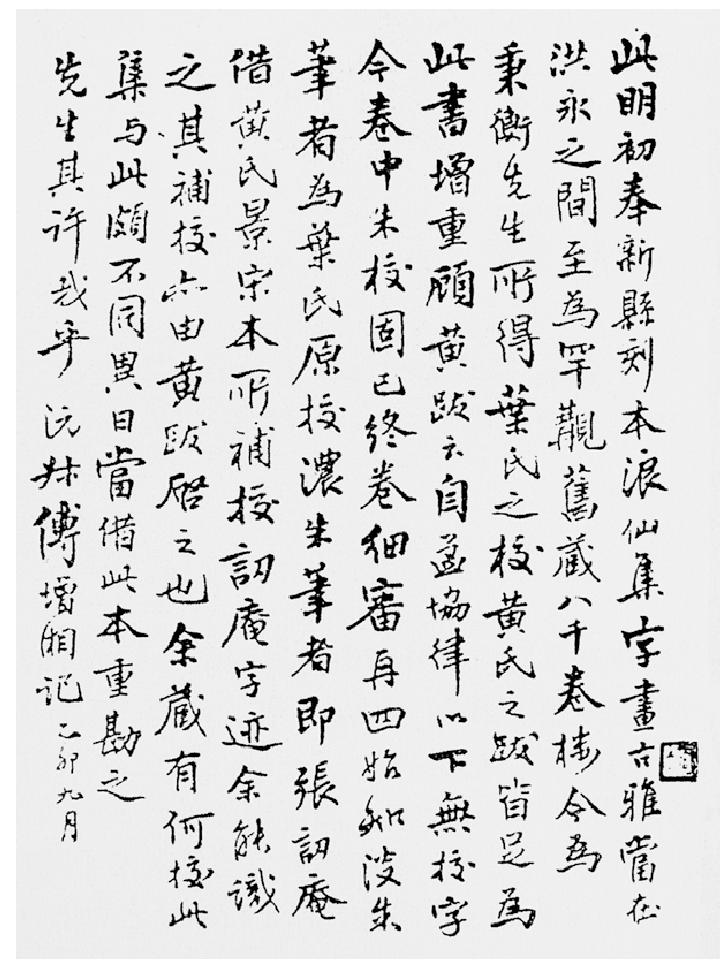 此明初奉新縣刻本浪仙集字畫古雅當在
洪永之間至為罕覯舊藏八千卷樓今為
秉衡先生所得葉氏之校黃氏之跋皆足為
此書增重顧黃跋云自盖協律以下無校字
今卷中朱校固已終卷細審再四始知淡朱
筆者為葉氏原校濃朱筆者即張訒庵
借黃氏景宋本所補校訒庵字迹余能識
之其補校亦由黃跋啓之也余藏有何校此
集与此頗不同異日當借此本重勘之
先生其許我乎沅叔傅增湘記乙卯九月